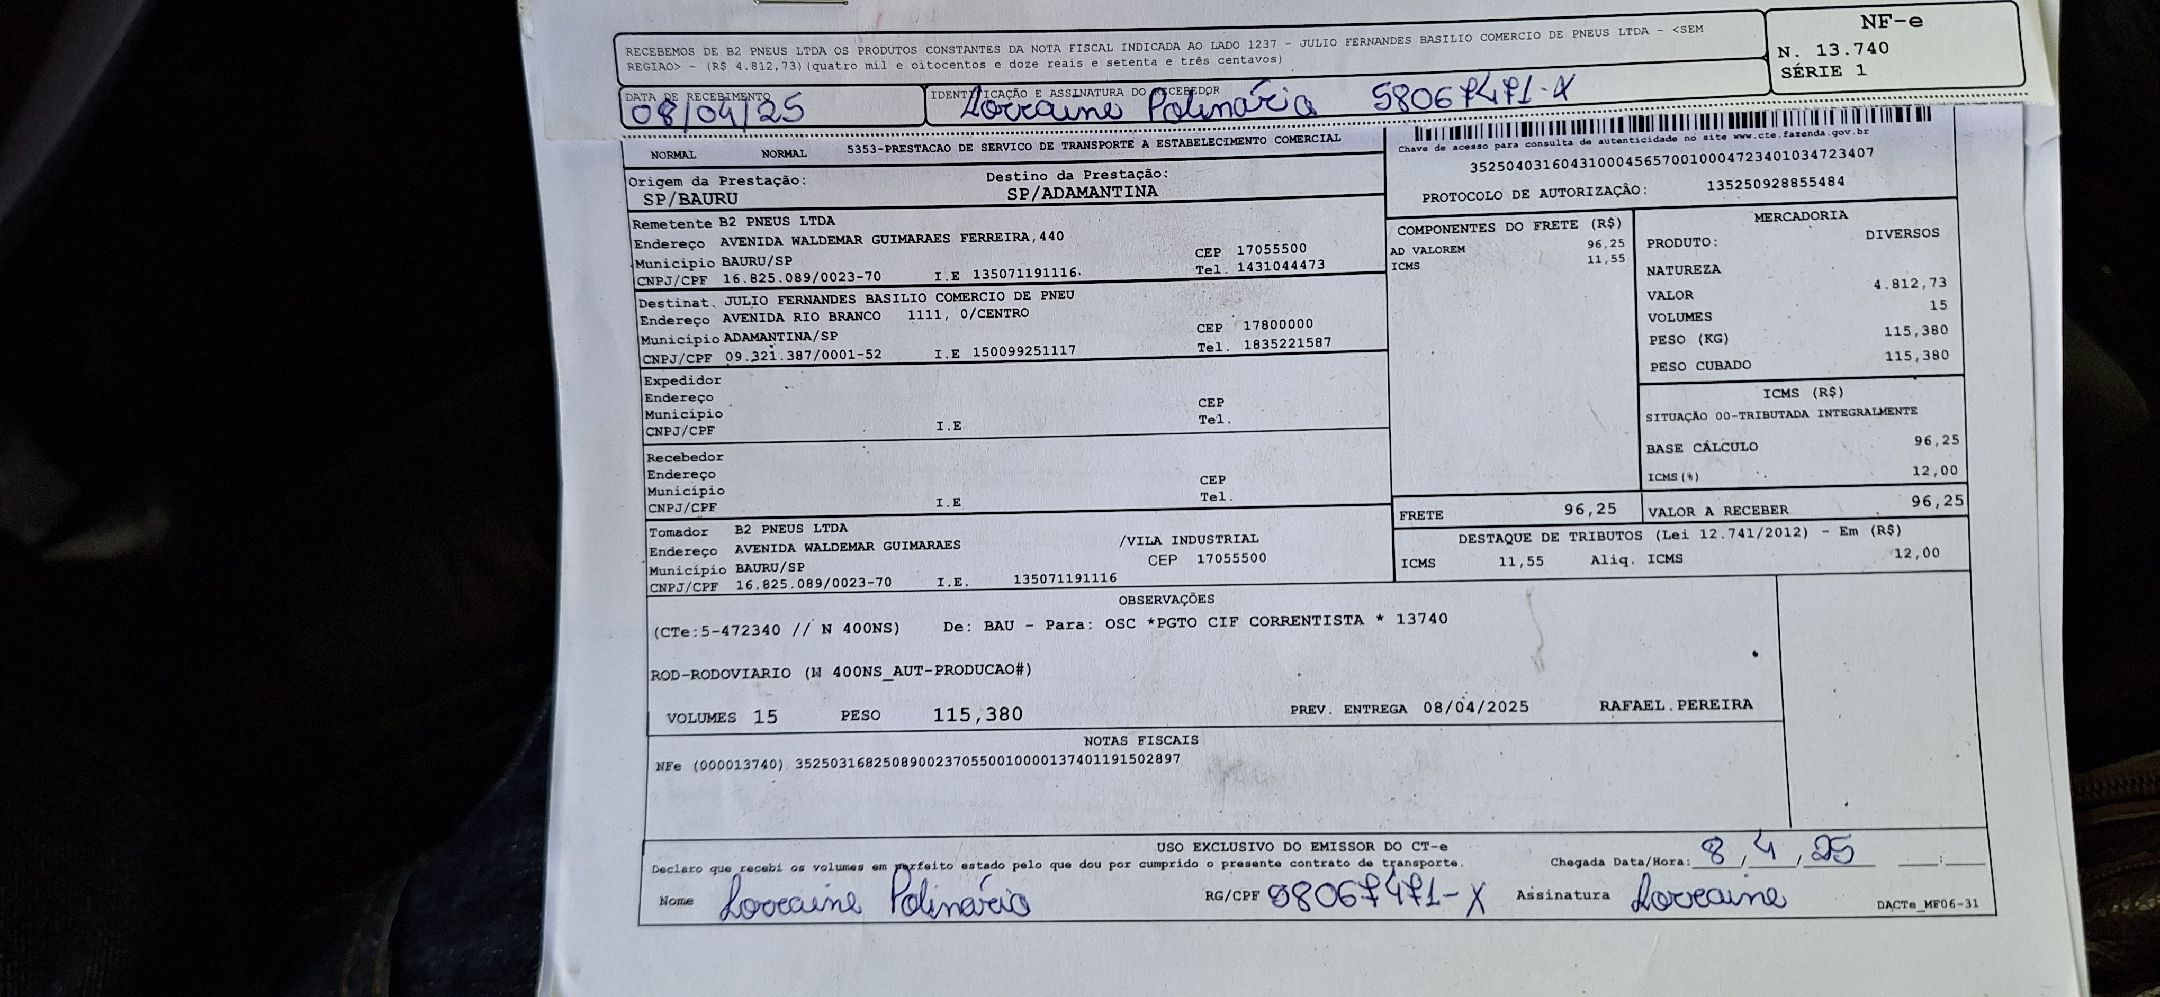 RECEBEMOS DE B2 PNEUS LTDA OS PRODUTOS CONSTANTES DA NOTA FISCAL INDICADA AO LADO 1237 - JULIO FERNANDES BASILIO COMERCIO DE PNEUS LTDA - <SEM
REGIAO> - (R$ 4.812,73)(quatro mil e oitocentos e doze reais e setenta e três centavos)
NF-e
N. 13.740
SÉRIE 1
DATA DE RECEBIMENTO
08/04/25
IDENTIFICAÇÃO E ASSINATURA DO RECEBEDOR
Lorraine Polinário 58067471-X
NORMAL NORMAL 5353-PRESTACAO DE SERVICO DE TRANSPORTE A ESTABELECIMENTO COMERCIAL
Chave de acesso para consulta de autenticidade no site www.cte.fazenda.gov.br
35250403160431000456570010004723401034723407
PROTOCOLO DE AUTORIZAÇÃO: 135250928855484
Origem da Prestação: Destino da Prestação:
SP/BAURU SP/ADAMANTINA
Remetente B2 PNEUS LTDA
Endereço AVENIDA WALDEMAR GUIMARAES FERREIRA,440 CEP 17055500
Município BAURU/SP Tel. 1431044473
CNPJ/CPF 16.825.089/0023-70 I.E 135071191116.
Destinat. JULIO FERNANDES BASILIO COMERCIO DE PNEU
Endereço AVENIDA RIO BRANCO 1111, 0/CENTRO
Município ADAMANTINA/SP CEP 17800000
CNPJ/CPF 09.321.387/0001-52 I.E 150099251117 Tel. 1835221587
Expedidor
Endereço
Município CEP
CNPJ/CPF I.E Tel.
Recebedor
Endereço
Município CEP
CNPJ/CPF I.E Tel.
Tomador B2 PNEUS LTDA
Endereço AVENIDA WALDEMAR GUIMARAES /VILA INDUSTRIAL
Município BAURU/SP CEP 17055500
CNPJ/CPF 16.825.089/0023-70 I.E. 135071191116
COMPONENTES DO FRETE (R$)
AD VALOREM 96,25
ICMS 11,55
MERCADORIA
PRODUTO: DIVERSOS
NATUREZA
VALOR 4.812,73
VOLUMES 15
PESO (KG) 115,380
PESO CUBADO 115,380
ICMS (R$)
SITUAÇÃO 00-TRIBUTADA INTEGRALMENTE
BASE CÁLCULO 96,25
ICMS(%) 12,00
FRETE 96,25 VALOR A RECEBER 96,25
DESTAQUE DE TRIBUTOS (Lei 12.741/2012) - Em (R$)
ICMS 11,55 Aliq. ICMS 12,00
OBSERVAÇÕES
(CTe:5-472340 // N 400NS) De: BAU - Para: OSC *PGTO CIF CORRENTISTA * 13740
ROD-RODOVIARIO (N 400NS_AUT-PRODUCAO#)
VOLUMES 15 PESO 115,380 PREV. ENTREGA 08/04/2025 RAFAEL.PEREIRA
NOTAS FISCAIS
NFe (000013740) 35250316825089002370550010000137401191502897
USO EXCLUSIVO DO EMISSOR DO CT-e
Declaro que recebi os volumes em perfeito estado pelo que dou por cumprido o presente contrato de transporte. Chegada Data/Hora: 8/4/25 __:__
Nome Lorraine Polinário RG/CPF 58067471-X Assinatura Lorraine
DACTe_MF06-31